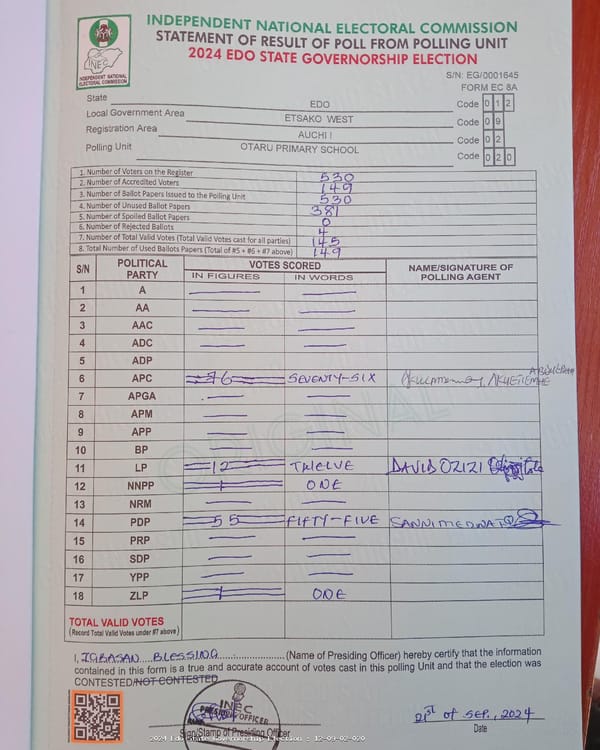 INDEPENDENT NATIONAL ELECTORAL COMMISSION
STATEMENT OF RESULT OF POLL FROM POLLING UNIT
2024 EDO STATE GOVERNORSHIP ELECTION
INEC
INDEPENDENT NATIONAL ELECTORAL COMMISSION
S/N: EG/0001645
FORM EC 8A
State EDO Code 0 1 2
Local Government Area ETSAKO WEST Code 0 9
Registration Area AUCHI I Code 0 2
Polling Unit OTARU PRIMARY SCHOOL Code 0 2 0
1. Number of Voters on the Register 530
2. Number of Accredited Voters 149
3. Number of Ballot Papers Issued to the Polling Unit 530
4. Number of Unused Ballot Papers 381
5. Number of Spoiled Ballot Papers 0
6. Number of Rejected Ballots 4
7. Number of Total Valid Votes (Total Valid Votes cast for all parties) 145
8. Total Number of Used Ballots Papers (Total of #5 + #6 + #7 above) 149
S/N POLITICAL PARTY VOTES SCORED NAME/SIGNATURE OF POLLING AGENT
IN FIGURES IN WORDS
1 A
2 AA
3 AAC
4 ADC
5 ADP
6 APC 76 SEVENTY-SIX
7 APGA
8 APM
9 APP
10 BP
11 LP 12 TWELVE DAVID OZIZI
12 NNPP 1 ONE
13 NRM
14 PDP 55 FIFTY-FIVE
15 PRP
16 SDP
17 YPP
18 ZLP 1 ONE
ORIGINAL
TOTAL VALID VOTES
(Record Total Valid Votes under #7 above)
I, IGBASAN BLESSING (Name of Presiding Officer) hereby certify that the information
contained in this form is a true and accurate account of votes cast in this polling Unit and that the election was
CONTESTED/NOT CONTESTED
INEC
PRESIDING OFFICER
21st of SEP., 2024
Sign/Stamp of Presiding Officer Date
2024 Edo State Governorship Election : 12-09-02-020